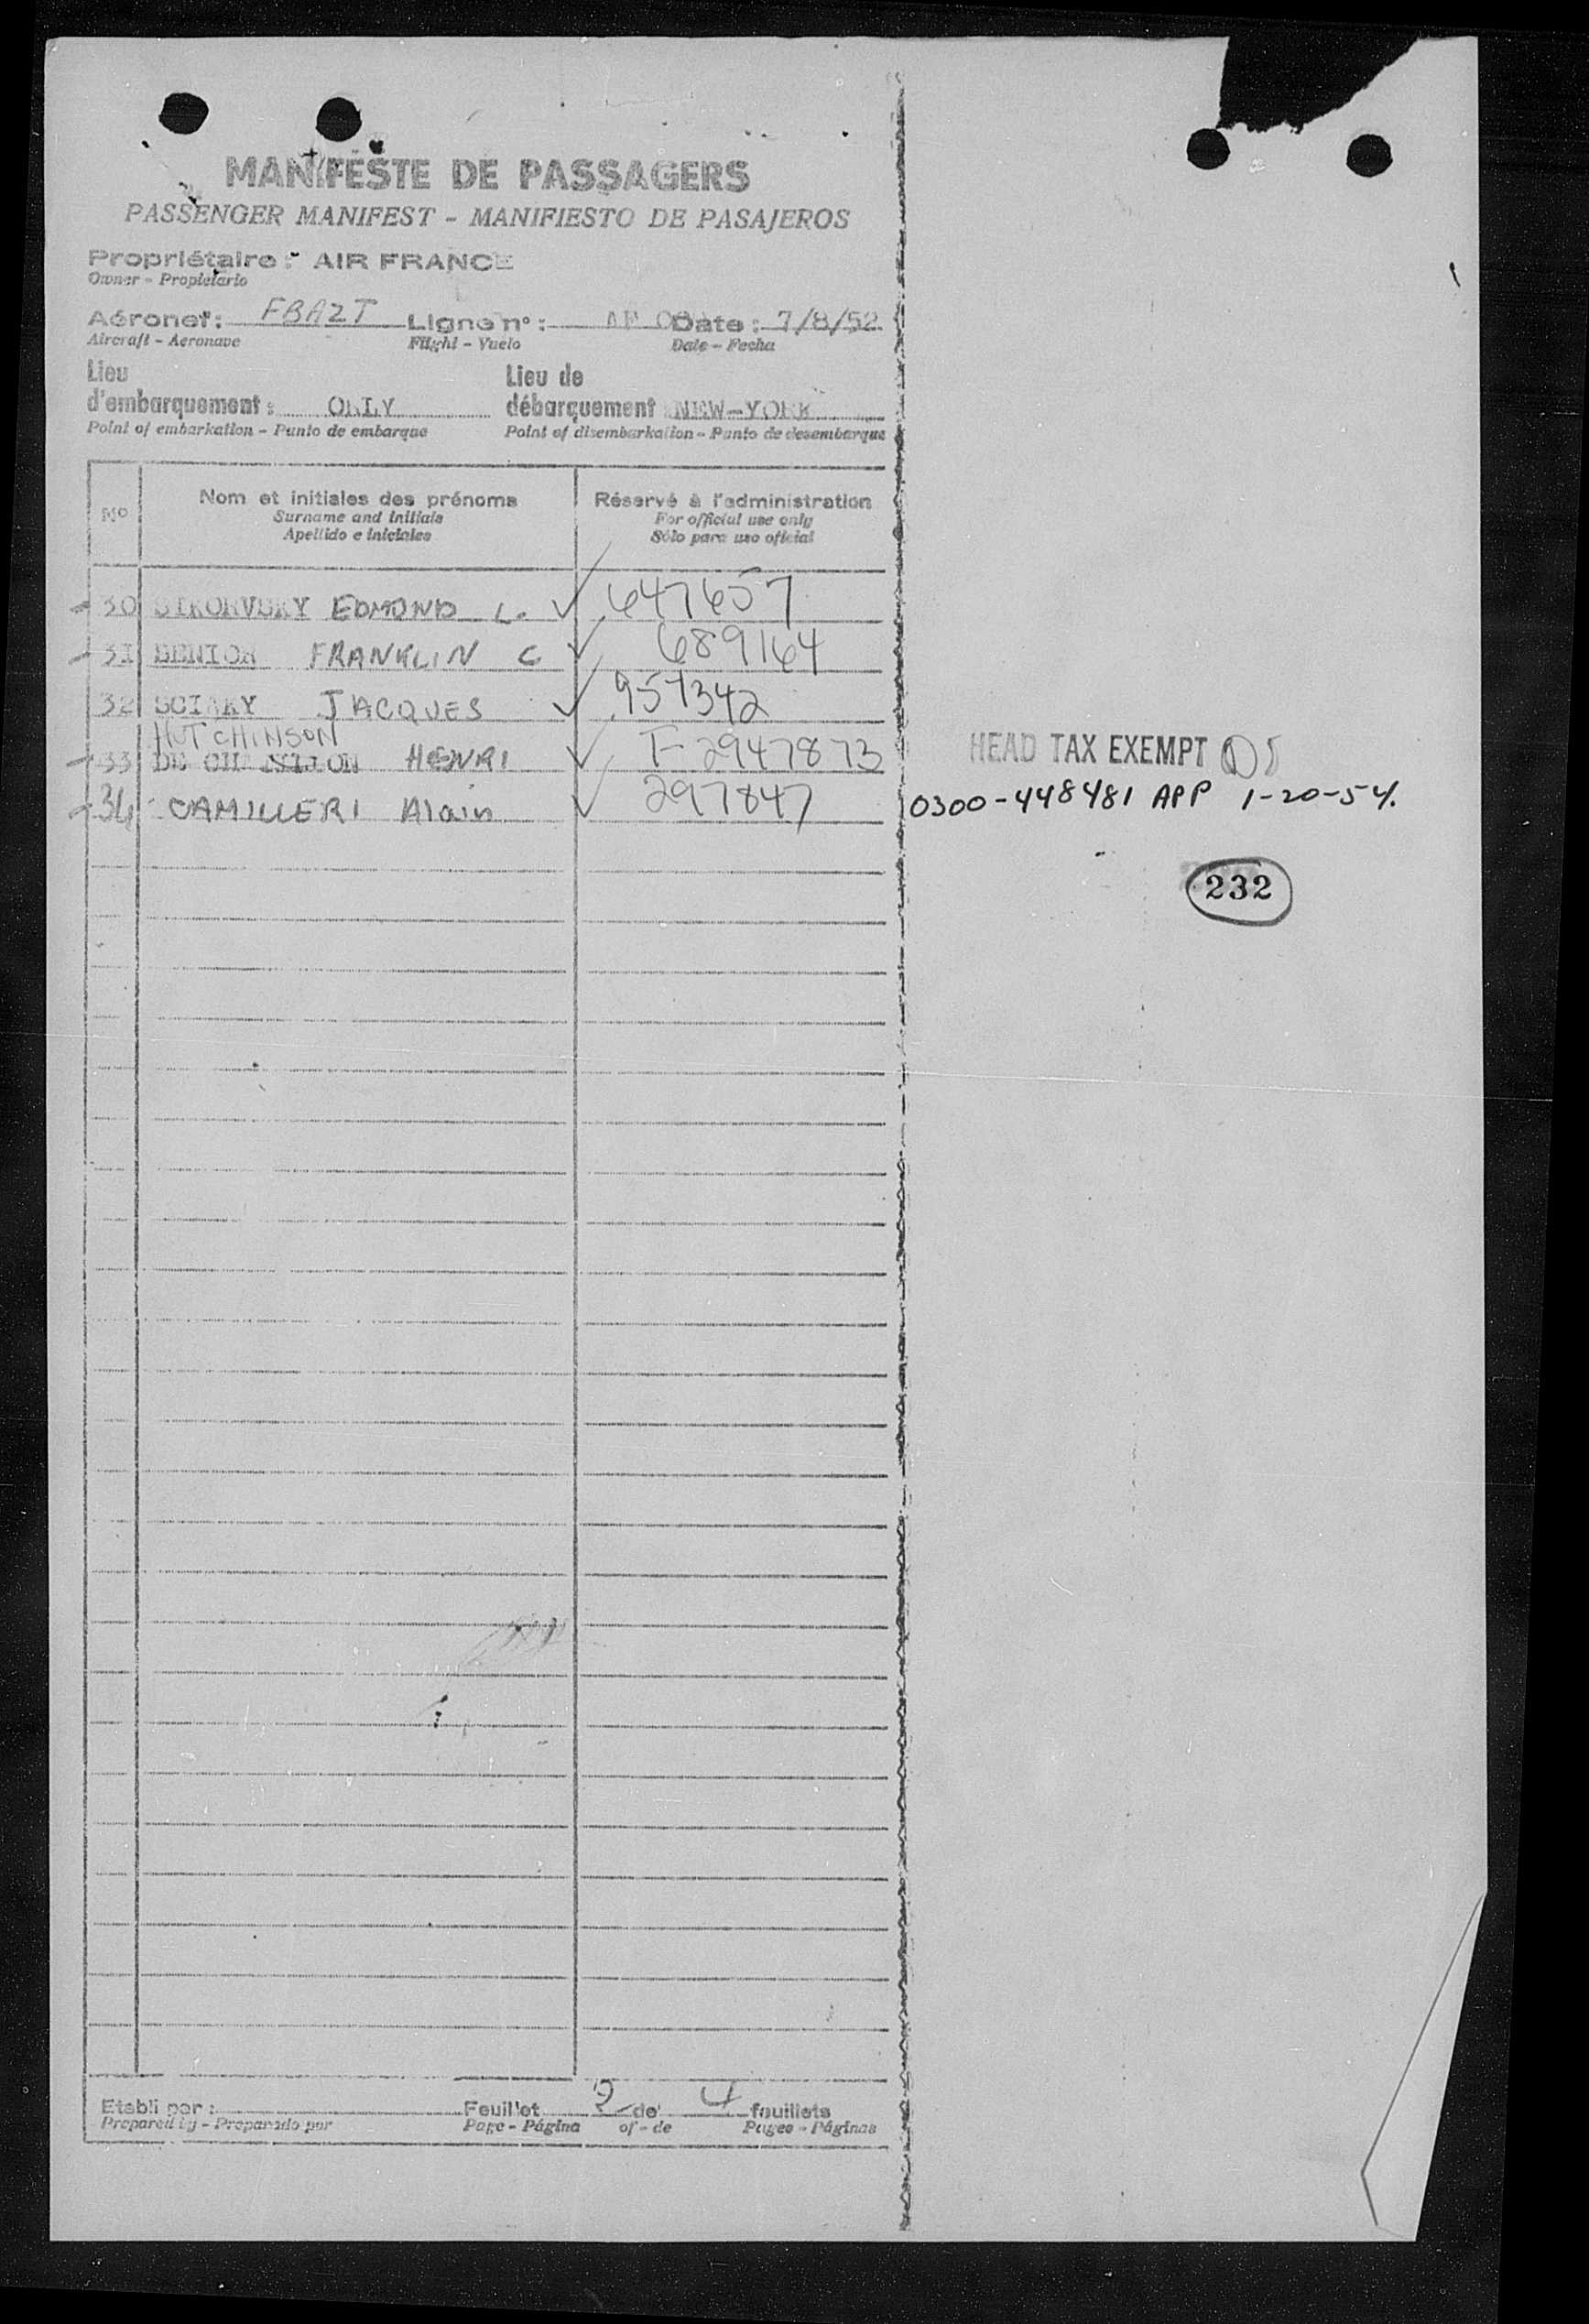 MANIFESTE DE PASSAGERS
PASSENGER MANIFEST - MANIFIESTO DE PASAJEROS
Propriétaire : AIR FRANCE
Owner - Propietario
Aéronef : FBAZT Ligne n° : AF Date : 7/8/52
Aircraft - Aeronave Flight - Vuelo Date - Fecha
Lieu d'embarquement : ORLY Lieu de débarquement NEW-YORK
Point of embarkation - Punto de embarque Point of disembarkation - Punto de desembarque
No Nom et initiales des prénoms Réservé à l'administration
Surname and initials For official use only
Apellido e iniciales Sólo para uso oficial
30 EDMOND L. ✓ 647657
31 SENIOR FRANKLIN C ✓ 689164
32 SCIAKY JACQUES ✓ 957342
HUTCHINSON
33 DE HENRI ✓ T-2947873 HEAD TAX EXEMPT
34 CAMILLERI Alain ✓ 297847 0300-448481 APP 1-20-54.
232
Etabli par : Feuillet 2 de 4 feuillets
Prepared by - Preparado por Page - Página of - de Pages - Páginas